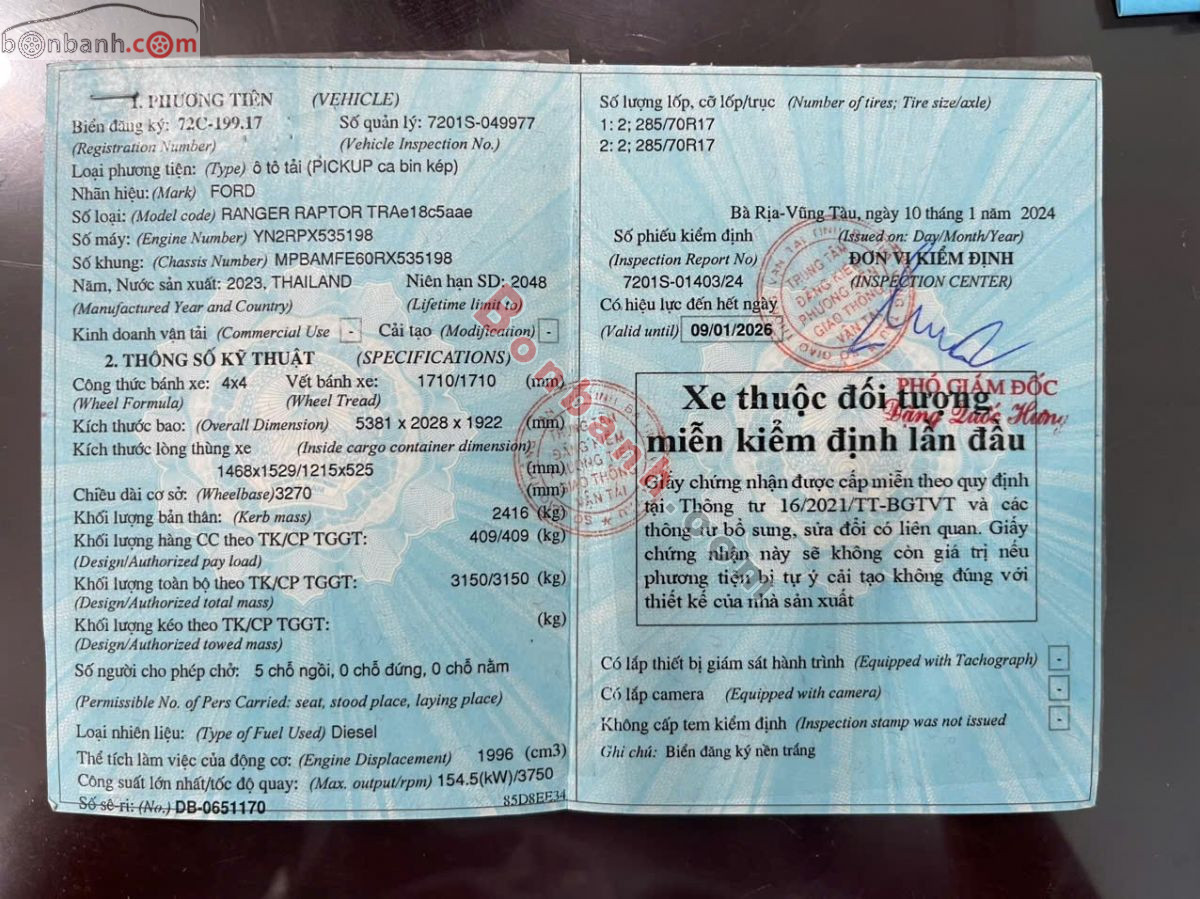 bonbanh.com
1. PHƯƠNG TIỆN (VEHICLE)
Biển đăng ký: 72C-199.17 Số quản lý: 7201S-049977
(Registration Number) (Vehicle Inspection No.)
Loại phương tiện: (Type) ô tô tải (PICKUP ca bin kép)
Nhãn hiệu: (Mark) FORD
Số loại: (Model code) RANGER RAPTOR TRAe18c5aae
Số máy: (Engine Number) YN2RPX535198
Số khung: (Chassis Number) MPBAMFE60RX535198
Năm, Nước sản xuất: 2023, THAILAND Niên hạn SD: 2048
(Manufactured Year and Country) (Lifetime limit to)
Kinh doanh vận tải (Commercial Use - Cải tạo (Modification) -
2. THÔNG SỐ KỸ THUẬT (SPECIFICATIONS)
Công thức bánh xe: 4x4 Vết bánh xe: 1710/1710 (mm)
(Wheel Formula) (Wheel Tread)
Kích thước bao: (Overall Dimension) 5381 x 2028 x 1922 (mm)
Kích thước lòng thùng xe (Inside cargo container dimension)
1468x1529/1215x525 (mm)
Chiều dài cơ sở: (Wheelbase) 3270 (mm)
Khối lượng bản thân: (Kerb mass) 2416 (kg)
Khối lượng hàng CC theo TK/CP TGGT: 409/409 (kg)
(Design/Authorized pay load)
Khối lượng toàn bộ theo TK/CP TGGT: 3150/3150 (kg)
(Design/Authorized total mass)
Khối lượng kéo theo TK/CP TGGT: (kg)
(Design/Authorized towed mass)
Số người cho phép chở: 5 chỗ ngồi, 0 chỗ đứng, 0 chỗ nằm
(Permissible No. of Pers Carried: seat, stood place, laying place)
Loại nhiên liệu: (Type of Fuel Used) Diesel
Thể tích làm việc của động cơ: (Engine Displacement) 1996 (cm3)
Công suất lớn nhất/tốc độ quay: (Max. output/rpm) 154.5(kW)/3750
Số sê-ri: (No.) DB-0651170 85D8EE34
Số lượng lốp, cỡ lốp/trục (Number of tires; Tire size/axle)
1: 2; 285/70R17
2: 2; 285/70R17
Bà Rịa-Vũng Tàu, ngày 10 tháng 1 năm 2024
Số phiếu kiểm định (Issued on: Day/Month/Year)
(Inspection Report No) ĐƠN VỊ KIỂM ĐỊNH
7201S-01403/24 (INSPECTION CENTER)
Có hiệu lực đến hết ngày
(Valid until) 09/01/2026
TRUNG TÂM
ĐĂNG KIỂM
PHƯƠNG TIỆN
GIAO THÔNG
VẬN TẢI
PHÓ GIÁM ĐỐC
Đặng Quốc Hưng
Xe thuộc đối tượng
miễn kiểm định lần đầu
Giấy chứng nhận được cấp miễn theo quy định
tại Thông tư 16/2021/TT-BGTVT và các
thông tư bổ sung, sửa đổi có liên quan. Giấy
chứng nhận này sẽ không còn giá trị nếu
phương tiện bị tự ý cải tạo không đúng với
thiết kế của nhà sản xuất
Có lắp thiết bị giám sát hành trình (Equipped with Tachograph) -
Có lắp camera (Equipped with camera) -
Không cấp tem kiểm định (Inspection stamp was not issued -
Ghi chú: Biển đăng ký nền trắng
Bonbanh.com